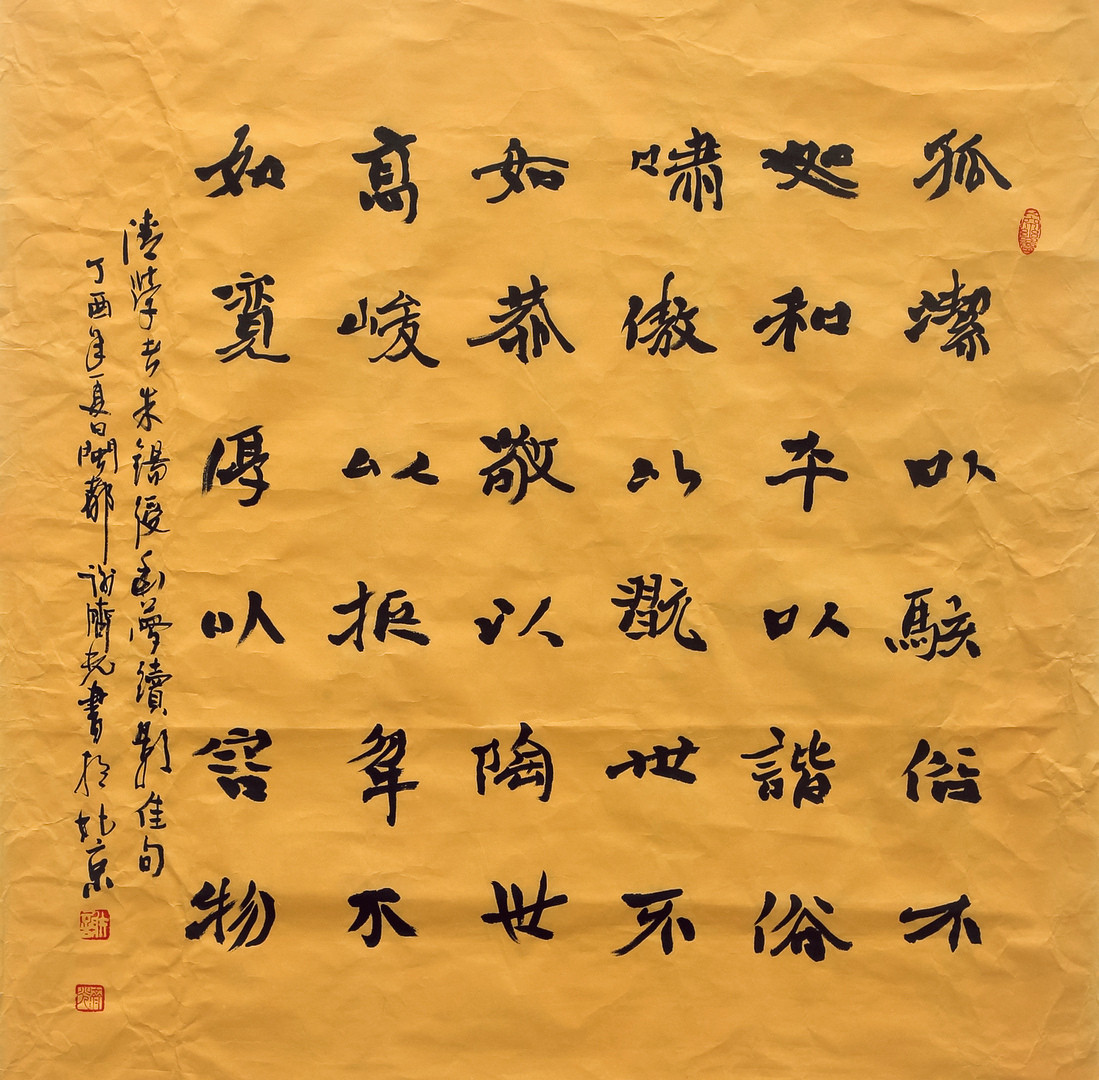 孤潔以駭俗不
如和平以諧俗
嘯傲以翫世不
如恭敬以陶世
高峻以拒羣不
如寬厚以容物
清學者朱錫綬幽夢續影佳句
丁酉年夏日閩都謝濟光書於北京